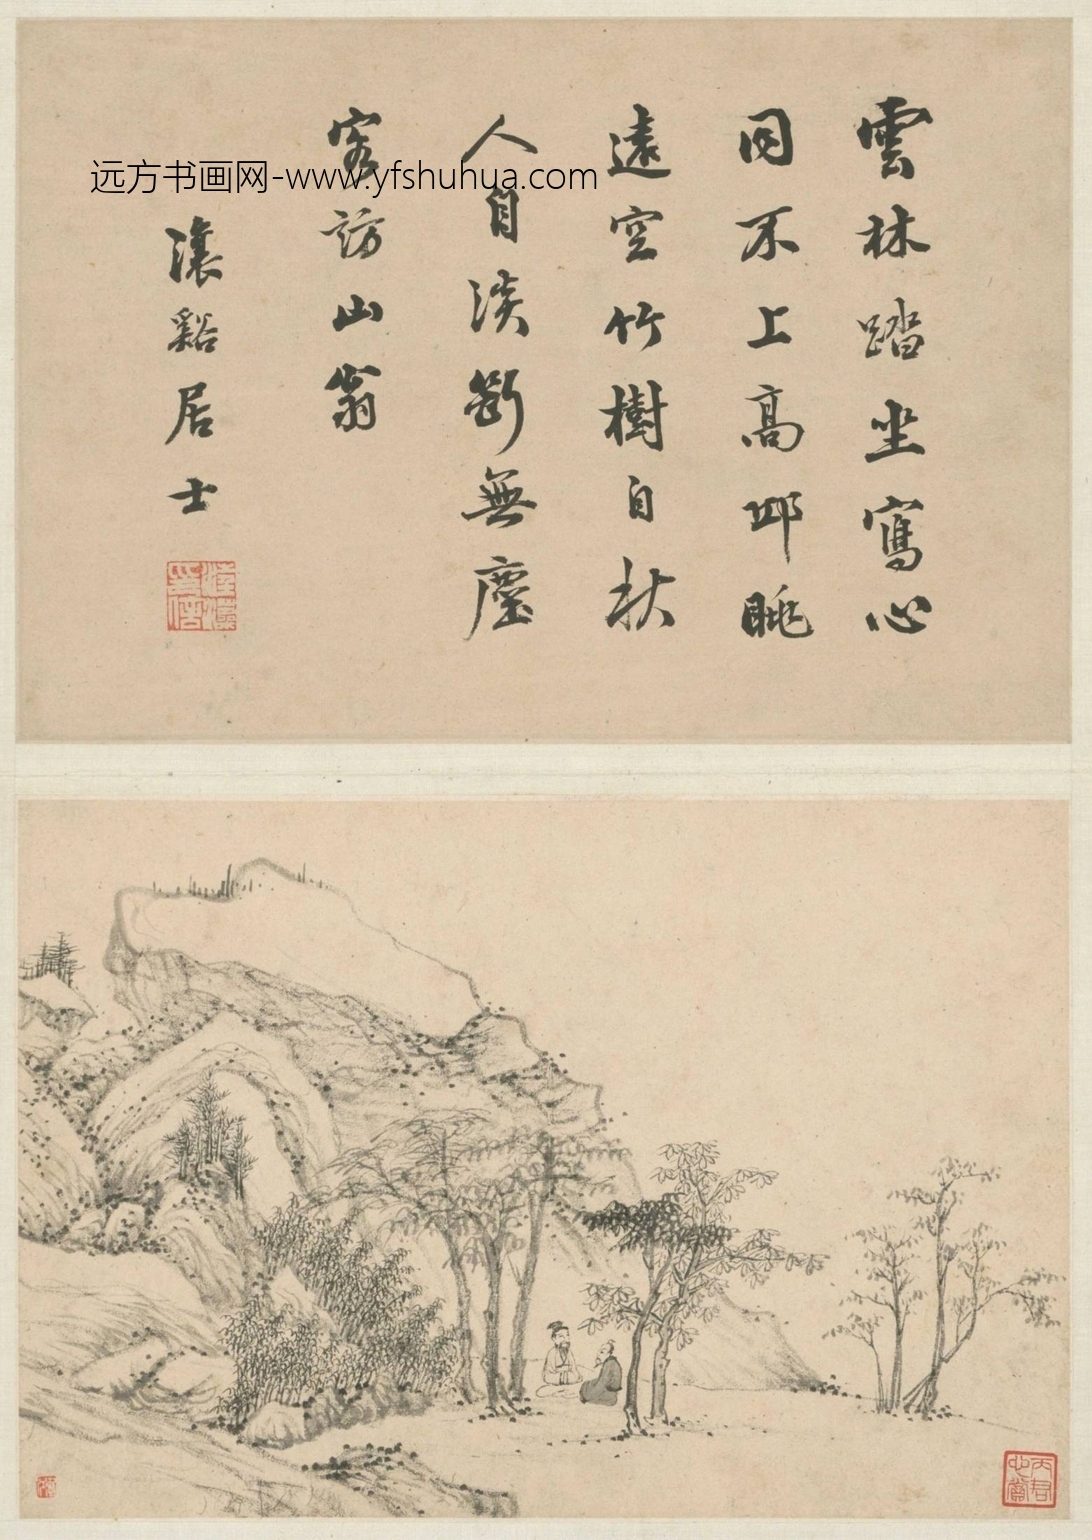 雲林踏坐寫心
同不上高邱眺
遠空竹樹自秋
人自淡斷無塵
客訪山翁
瀼谿居士
远方书画网-www.yfshuhua.com